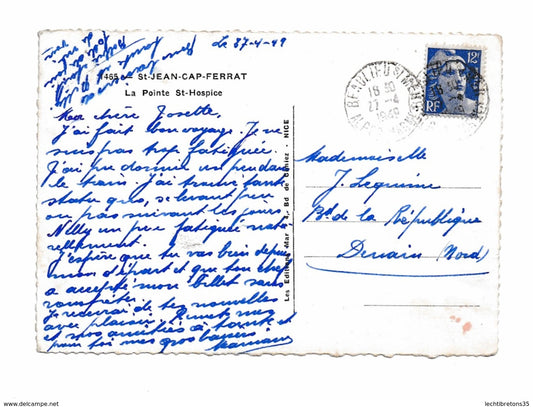 Le 27-4-49
1465 — St-JEAN-CAP-FERRAT
La Pointe St-Hospice
Ma chère Josette,
J'ai fait bon voyage. Je ne
suis pas trop fatiguée.
J'ai pu dormir un peu dans
le train. J'ai trouvé tante
statu quo, se levant peu
ou pas suivant les jours
Nelly un peu fatiguée natu
rellement.
J'espère que tu vas bien depuis
mon départ et que ton chef
a accepté mon billet sans
rouspéter.
Je recevrai de tes nouvelles
avec plaisir. Remets
et mes amitiés à tante et
pour toi mes gros baisers
Les Editions Mar
Bd de
NICE
BEAULIEU S/ MER
16 30
27 - 4
1949
12F
RF
Mademoiselle
J. Lequime
Bd de la République
Denain (Nord)
www.delcampe.net
lechtibretons35